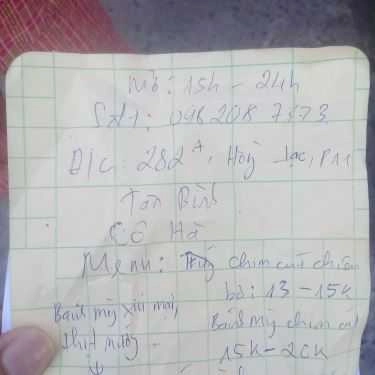 Mở: 15h - 24h
Sđt: 096 208 7373
Đ/c: 282A, Hồng Lạc, P11
Tân Bình
Cô Hà
Menu: Trứng chim cút chiên
bơ: 13 - 15k
Bánh mỳ xíu mại,
Bánh mỳ chim cút
thịt nướng
15k - 20k